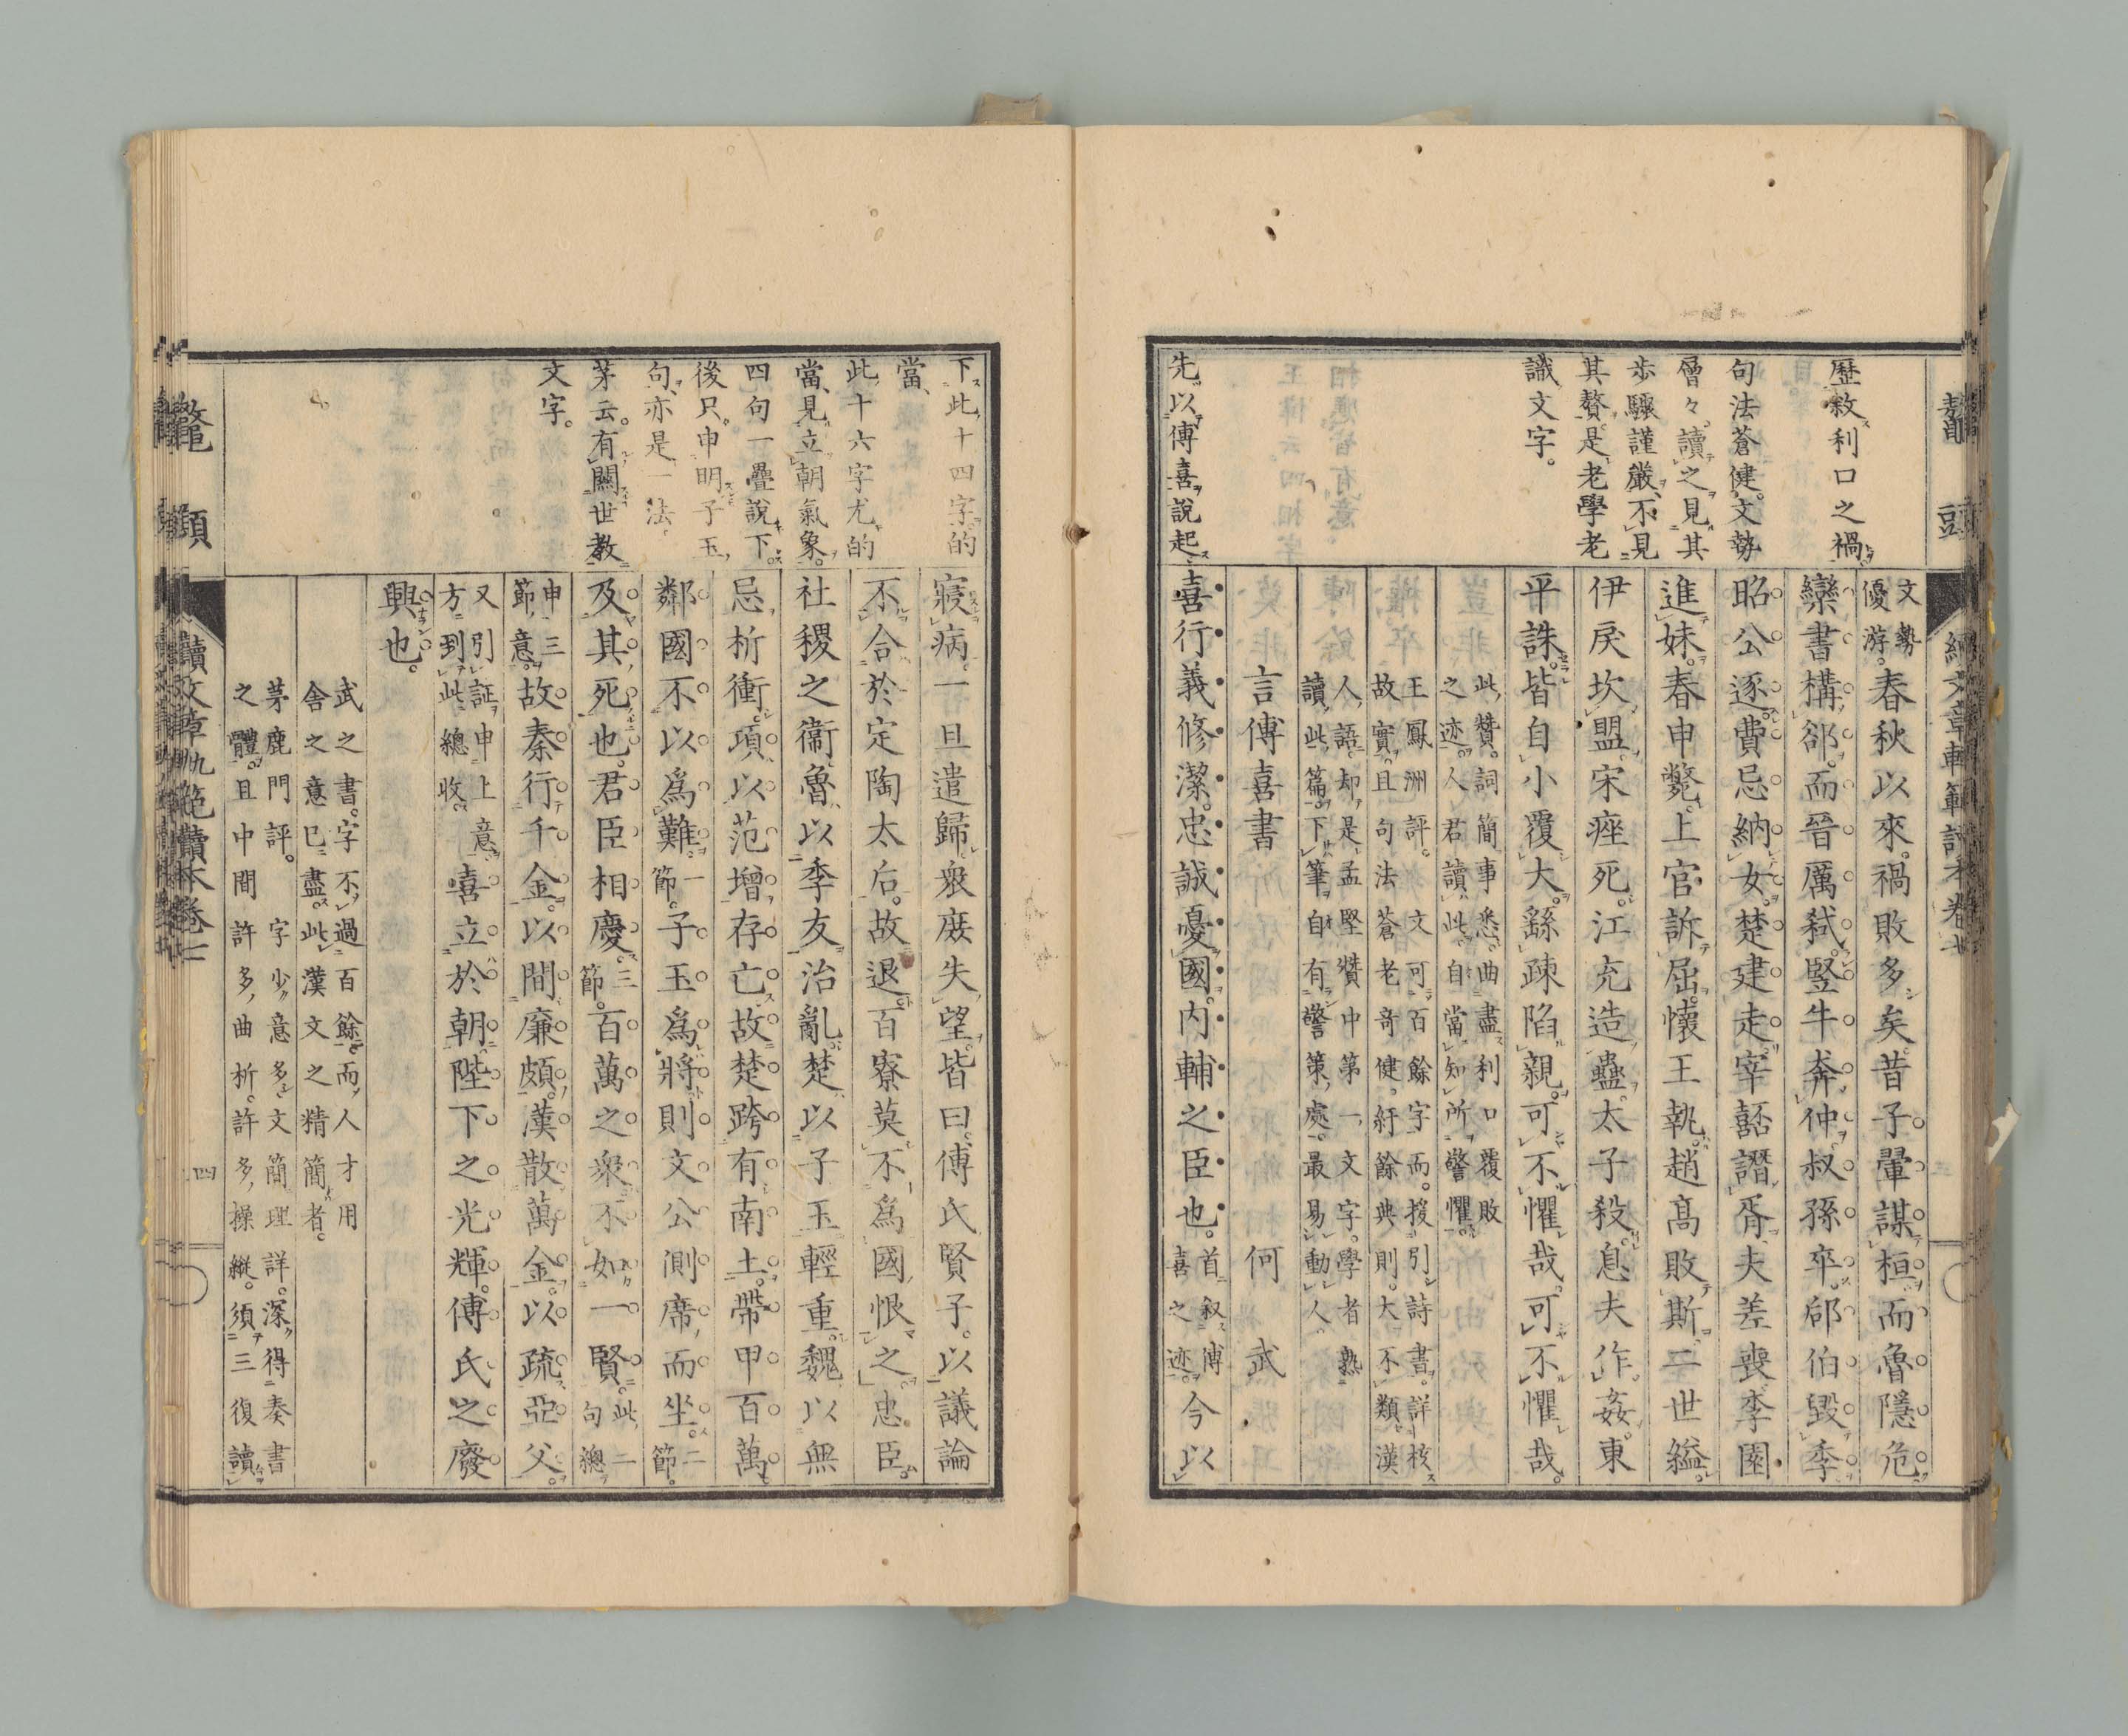 鼇頭
續文章軌範讀本卷七
歷敘利口之禍。
句法蒼健。文勢
層々。讀之見其
步驟謹嚴、不見
其贅。是老學老
識文字。
先以傅喜說起
文勢優游。春秋以來。禍敗多矣。昔子翬謀桓而魯隱危。
欒書搆郤。而晉厲弒。豎牛奔仲叔孫卒。郈伯毀季
昭公逐。費忌納女。楚建走。宰嚭譖胥夫差喪李園
進妹。春申斃。上官訴屈。懷王執。趙高敗斯。二世縊。
伊戾坎盟。宋痤死。江充造蠱。太子殺。息夫作姦。東
平誅。皆自小覆大。繇疎陷親。可不懼哉。可不懼哉。
此贊。詞簡事悉。曲盡利口覆敗
之迹。人君讀此。自當知所警懼。
王鳳洲評。文可百餘字而。援引詩書。詳核
故實。且句法蒼老奇健。紆餘典則。大不類漢
人語。却是孟堅贊中第一文字。學者熟
讀此篇。下筆自有警策處。最易動人
言傅喜書　何武
喜行義修潔。忠誠憂國。內輔之臣也。首叙傅喜之迹。今以
下此十四字的
當、
此十六字尤的
當、見立朝氣象。
四句一疊說下。
後只申明子玉
句亦是一法。
茅云。有關世教
文字。
寢病。一旦遣歸衆庶失望。皆曰。傅氏賢子。以議論
不合於定陶太后。故退。百寮莫不爲國恨之。忠臣。
社稷之衞。魯以季友治亂。楚以子玉輕重。魏以無
忌折衝。項以范增存亡。故楚跨有南土。帶甲百萬。
鄰國不以爲難。一節。子玉爲將則文公側席而坐。二節。
及其死也。君臣相慶。三節。百萬之衆不如一賢。此二句總
申三節意。故秦行千金。以間廉頗。漢散萬金。以疏亞父。
又引証。申上意。方到此總收。喜立於朝。陛下之光輝。傅氏之廢
興也。
武之書。字不過百餘。而人才用
舍之意已盡。此漢文之精簡者。
茅鹿門評。字少意多。文簡理詳。深得奏書
之體。且中間許多曲折。許多操縱。須三復讀
鼇頭
續文章軌範讀本卷七
四